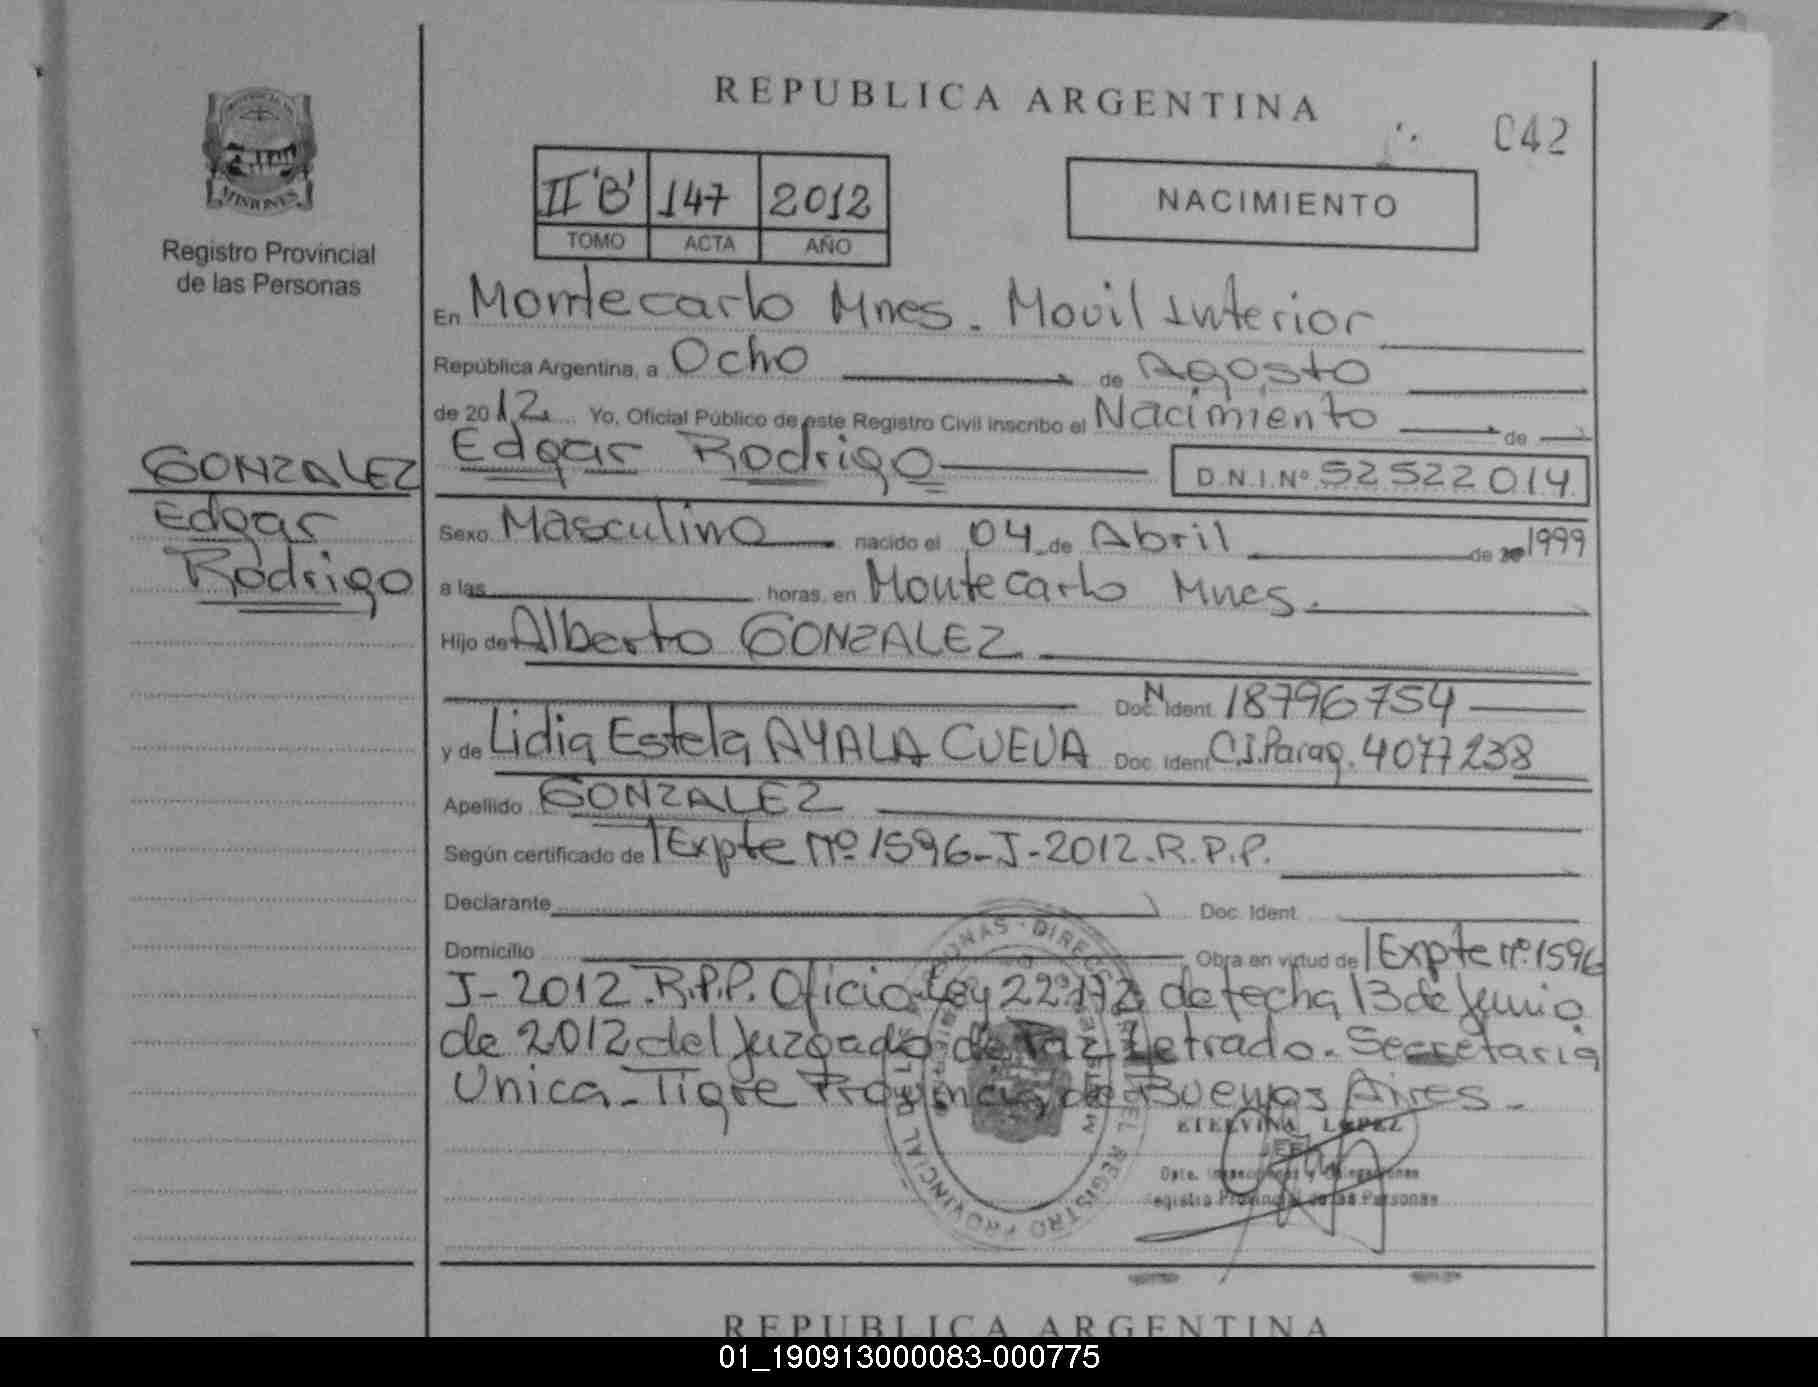 REPUBLICA ARGENTINA
042
MISIONES
Registro Provincial
de las Personas
II 'B' 147 2012
TOMO ACTA AÑO
NACIMIENTO
En Montecarlo Mnes. Movil Interior
República Argentina, a Ocho de Agosto
de 2012 Yo, Oficial Público de este Registro Civil inscribo el Nacimiento de
Edgar Rodrigo D.N.I.Nº 52522014
GONZALEZ
Edgar
Rodrigo
Sexo Masculino nacido el 04 de Abril de 1999
a las horas, en Montecarlo Mnes.
Hijo de Alberto GONZALEZ
Doc. N Ident. 18796754
y de Lidia Estela AYALA CUEVA Doc. Ident C.I.Parag. 4077238
Apellido GONZALEZ
Según certificado de Expte Nº 1596-J-2012.R.P.P.
Declarante Doc. Ident.
Domicilio Obra en virtud de Expte nº 1596
J-2012.R.P.P. Oficio Ley 22.172 de fecha 13 de Junio
de 2012 del Juzgado de Paz Letrado. Secretaria
Unica. Tigre Provincia de Buenos Aires.
ETELVINA LOPEZ
JEFE
Registro Provincial de las Personas
REGISTRO PROVINCIAL
REPUBLICA ARGENTINA
01_190913000083-000775